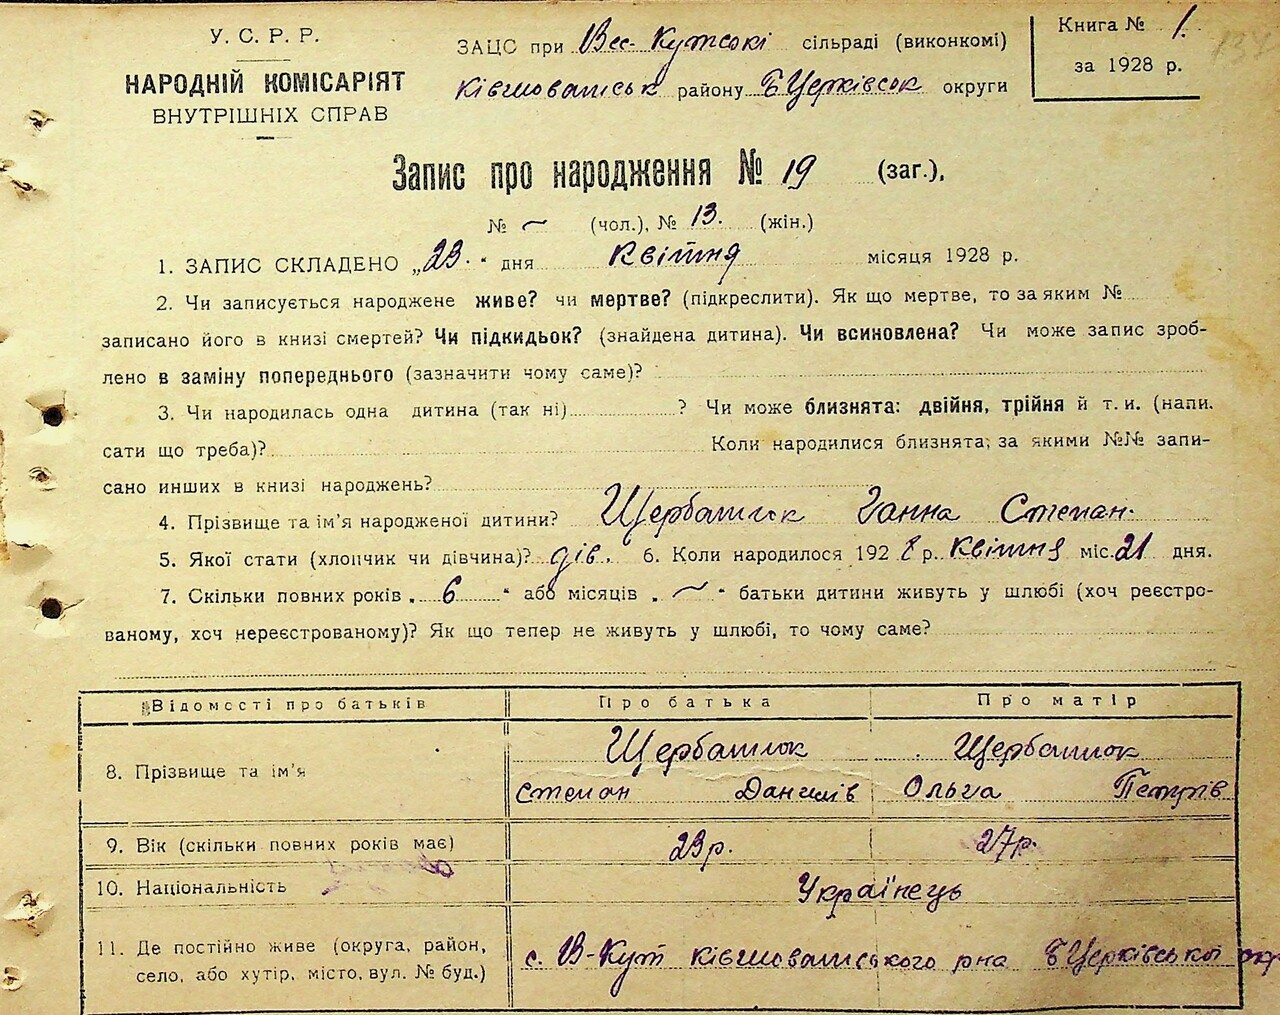 У. С. Р. Р.
НАРОДНІЙ КОМІСАРІЯТ
ВНУТРІШНІХ СПРАВ
ЗАЦС при Вес-Кутські сільраді (виконкомі)
Ківшоватськ району Б Церківськ округи
Книга № 1.
за 1928 р.
134
Запис про народження № 19 (заг.),
№ ~ (чол.), № 13. (жін.)
1. ЗАПИС СКЛАДЕНО „23." дня квітня місяця 1928 р.
2. Чи записується народжене живе? чи мертве? (підкреслити). Як що мертве, то за яким №
записано його в книзі смертей? Чи підкидьок? (знайдена дитина). Чи всиновлена? Чи може запис зроб-
лено в заміну попереднього (зазначити чому саме)?
3. Чи народилась одна дитина (так ні) ? Чи може близнята: двійня, трійня й т. и. (напи.
сати що треба)? Коли народилися близнята; за якими №№ запи-
сано инших в книзі народжень?
4. Прізвище та ім'я народженої дитини? Щербатюк Ганна Степан.
5. Якої стати (хлопчик чи дівчина)? дів. 6. Коли народилося 1928 р. квітня міс. 21 дня.
7. Скільки повних років „ 6 " або місяців „ ~ " батьки дитини живуть у шлюбі (хоч реєстро-
ваному, хоч нереєстрованому)? Як що тепер не живуть у шлюбі, то чому саме?
Відомості про батьків Про батька Про матір
8. Прізвище та ім'я Щербатюк Степан Данилів Щербатюк Ольга Петрів
9. Вік (скільки повних років має) 23 р. 27 р.
10. Національність Українець
11. Де постійно живе (округа, район, село, або хутір, місто, вул. № буд.) с. В-Кут Ківшоватського рна Б Церківської окр